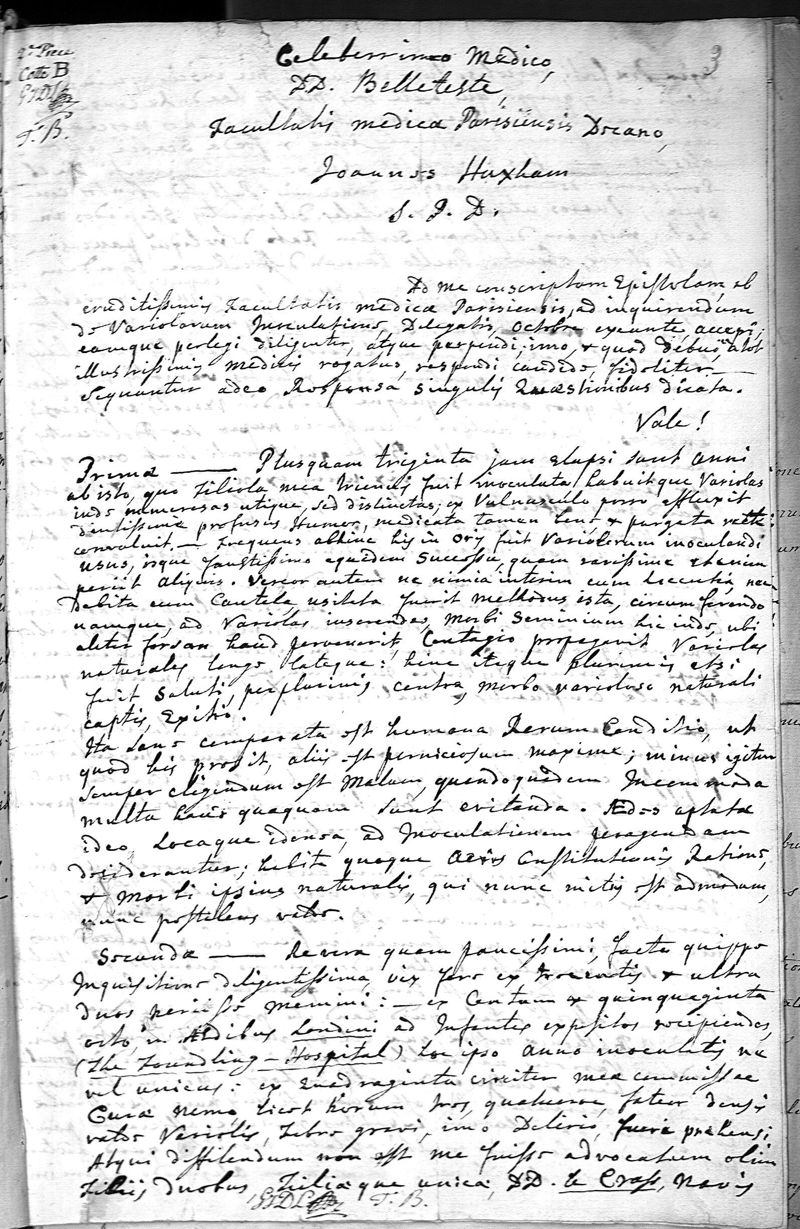 2e Piece
Cotte B
T. B.
3
Celeberrimo Medico,
DD. Belleteste,
Facultatis medicæ Parisiensis Decano,
Joannes Huxham
S. P. D.
Ad me conscriptam Epistolam, ab
eruditissimis Facultatis medicæ Parisiensis, ad inquirendum
de Variolarum Insculatione, Delegatis, octobre exeunte, accepi;
eamque perlegi diligenter, atque perpendi; imo, & quod debui, a tot
illustrissimis medicis rogatus, respondi candide, fideliter —
Sequantur adeo Responsa singulis Quæstionibus dicata.
Vale!
Primæ —— Plusquam triginta jam elapsi sunt anni
ab isto, quo Filiola mea triennis fuit inoculata, habuitque Variolas
inde numerosas utique, sed distinctas; ex Vulnusculo porro effluxit
diutissime profusus Humor, medicata tamen bene & purgata recte
convaluit. — Frequens abhinc his in oris fuit Variolarum inoculandi
usus, isque faustissimo equidem Successu, quam rarissime etenim
periit aliquis. Vereor autem ne nimia interim cum Licentia, nec
Debita cum Cautela usitata fuerit methodus ista, circumferendo
namque, ad Variolas inserendas, morbi Seminium hic inde, ubi
aliter forsan haud pervenerit, Contagio propagavit Variolas
naturales longe lateque: hinc itaque plurimis etsi
fuit Saluti, perplurimis contra, morbo varioloso naturali
captis, Exitio.
Ita sane comparata est humana Rerum Conditio, ut
quod his prosit, aliis est perniciosum maxime; minus igitur
semper eligendum est Malum, quandoquidem Incommoda
multa haud quaquam sunt evitanda. Ædes aptatæ
ideo, Locaque idonea, ad Inoculationem peragendam
desiderantur; habita quoque Aeris Constitutionis Ratione,
& Morbi ipsius naturalis, qui nunc mitis est admodum,
nunc pestilens valde.
Secundæ —— Revera quam paucissimi, facta quippe
Inquisitione diligentissima, vix fere ex trecentis & ultra
duos periisse memini: — ex Centum & quinquaginta
octo in Ædibus Londini ad Infantes expositos recipiendos,
(The Foundling-Hospital) hoc ipso anno inoculatis ne
vel unicus: ex Quadraginta circiter meæ commissae
Curæ nemo, licet horum tres, quatuorve, fateor densis
valde Variolis, Febre gravi, imo Delirio, fuere prehensi;
Atqui diffitendum non est me fuisse advocatum olim
Filiis duobus, Filiaque unica, DD. le Crass, Navis
T. B.